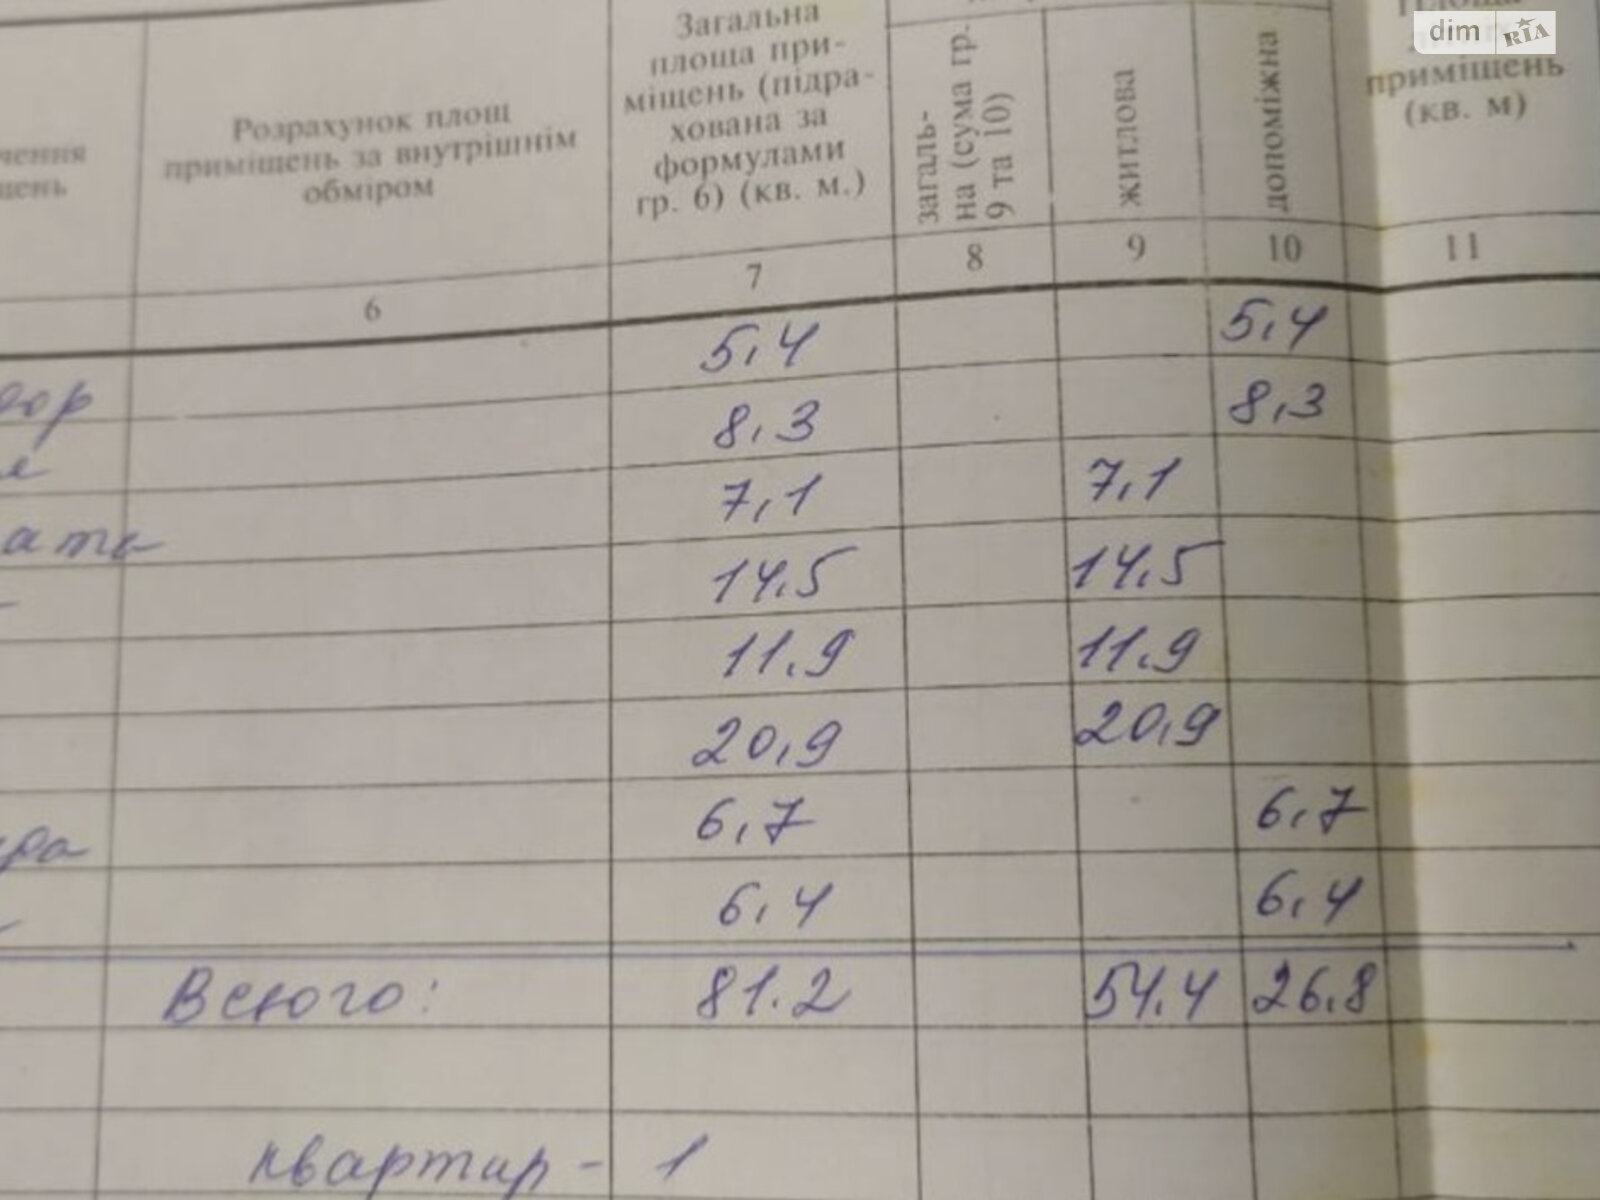 dim RIA
Розрахунок площ
приміщень за внутрішнім
обміром
Загальна
площа при-
міщень (підра-
хована за
формулами
гр. 6) (кв. м.)
загаль-
на (сума гр.
9 та 10)
житлова
допоміжна
приміщень
(кв. м)
6 7 8 9 10 11
5,4 5,4
8,3 8,3
7,1 7,1
14,5 14,5
11.9 11.9
20,9 20,9
6,7 6,7
6,4 6,4
Всього: 81.2 54.4 26.8
квартир - 1